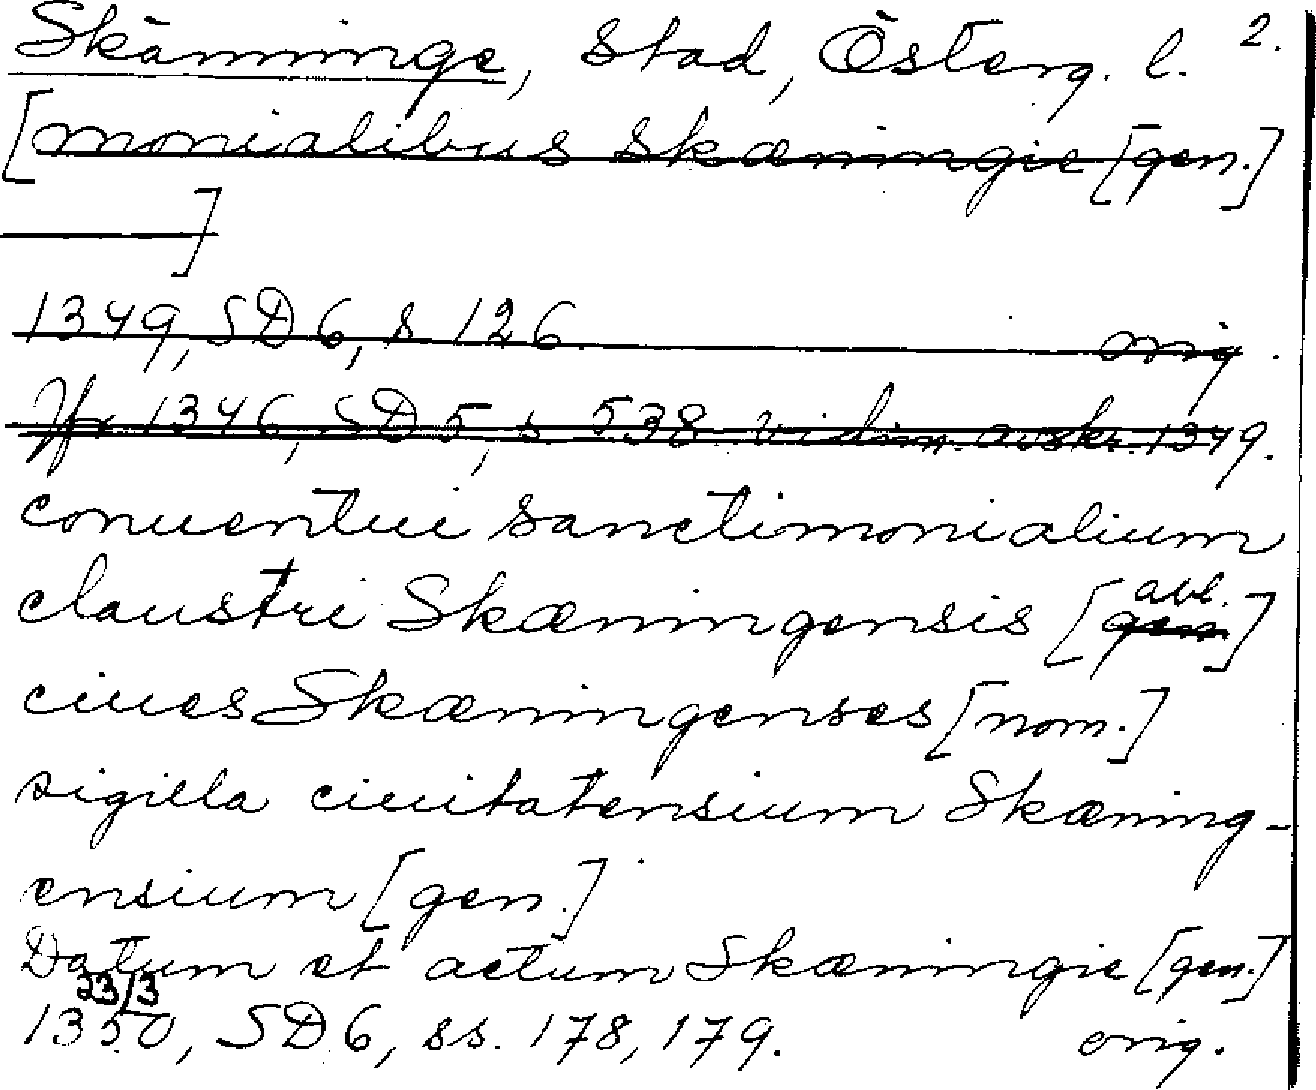 Skänninge, Stad, Österg. l. 2.
[monialibus Skæningie [gen.]
——]
1349, SD6, s 126 orig.
Jfr 1346, SD5, s. 538 vidim. avskr. 1349.
conuentui sanctimonialium
claustri Skæningensis [gen abl.]
ciues Skæningenses [nom.]
sigilla ciuitatensium Skæning-
ensium [gen.]
Datum et actum Skæningie [gen.]
1350 23/3, SD6, ss. 178, 179. orig.